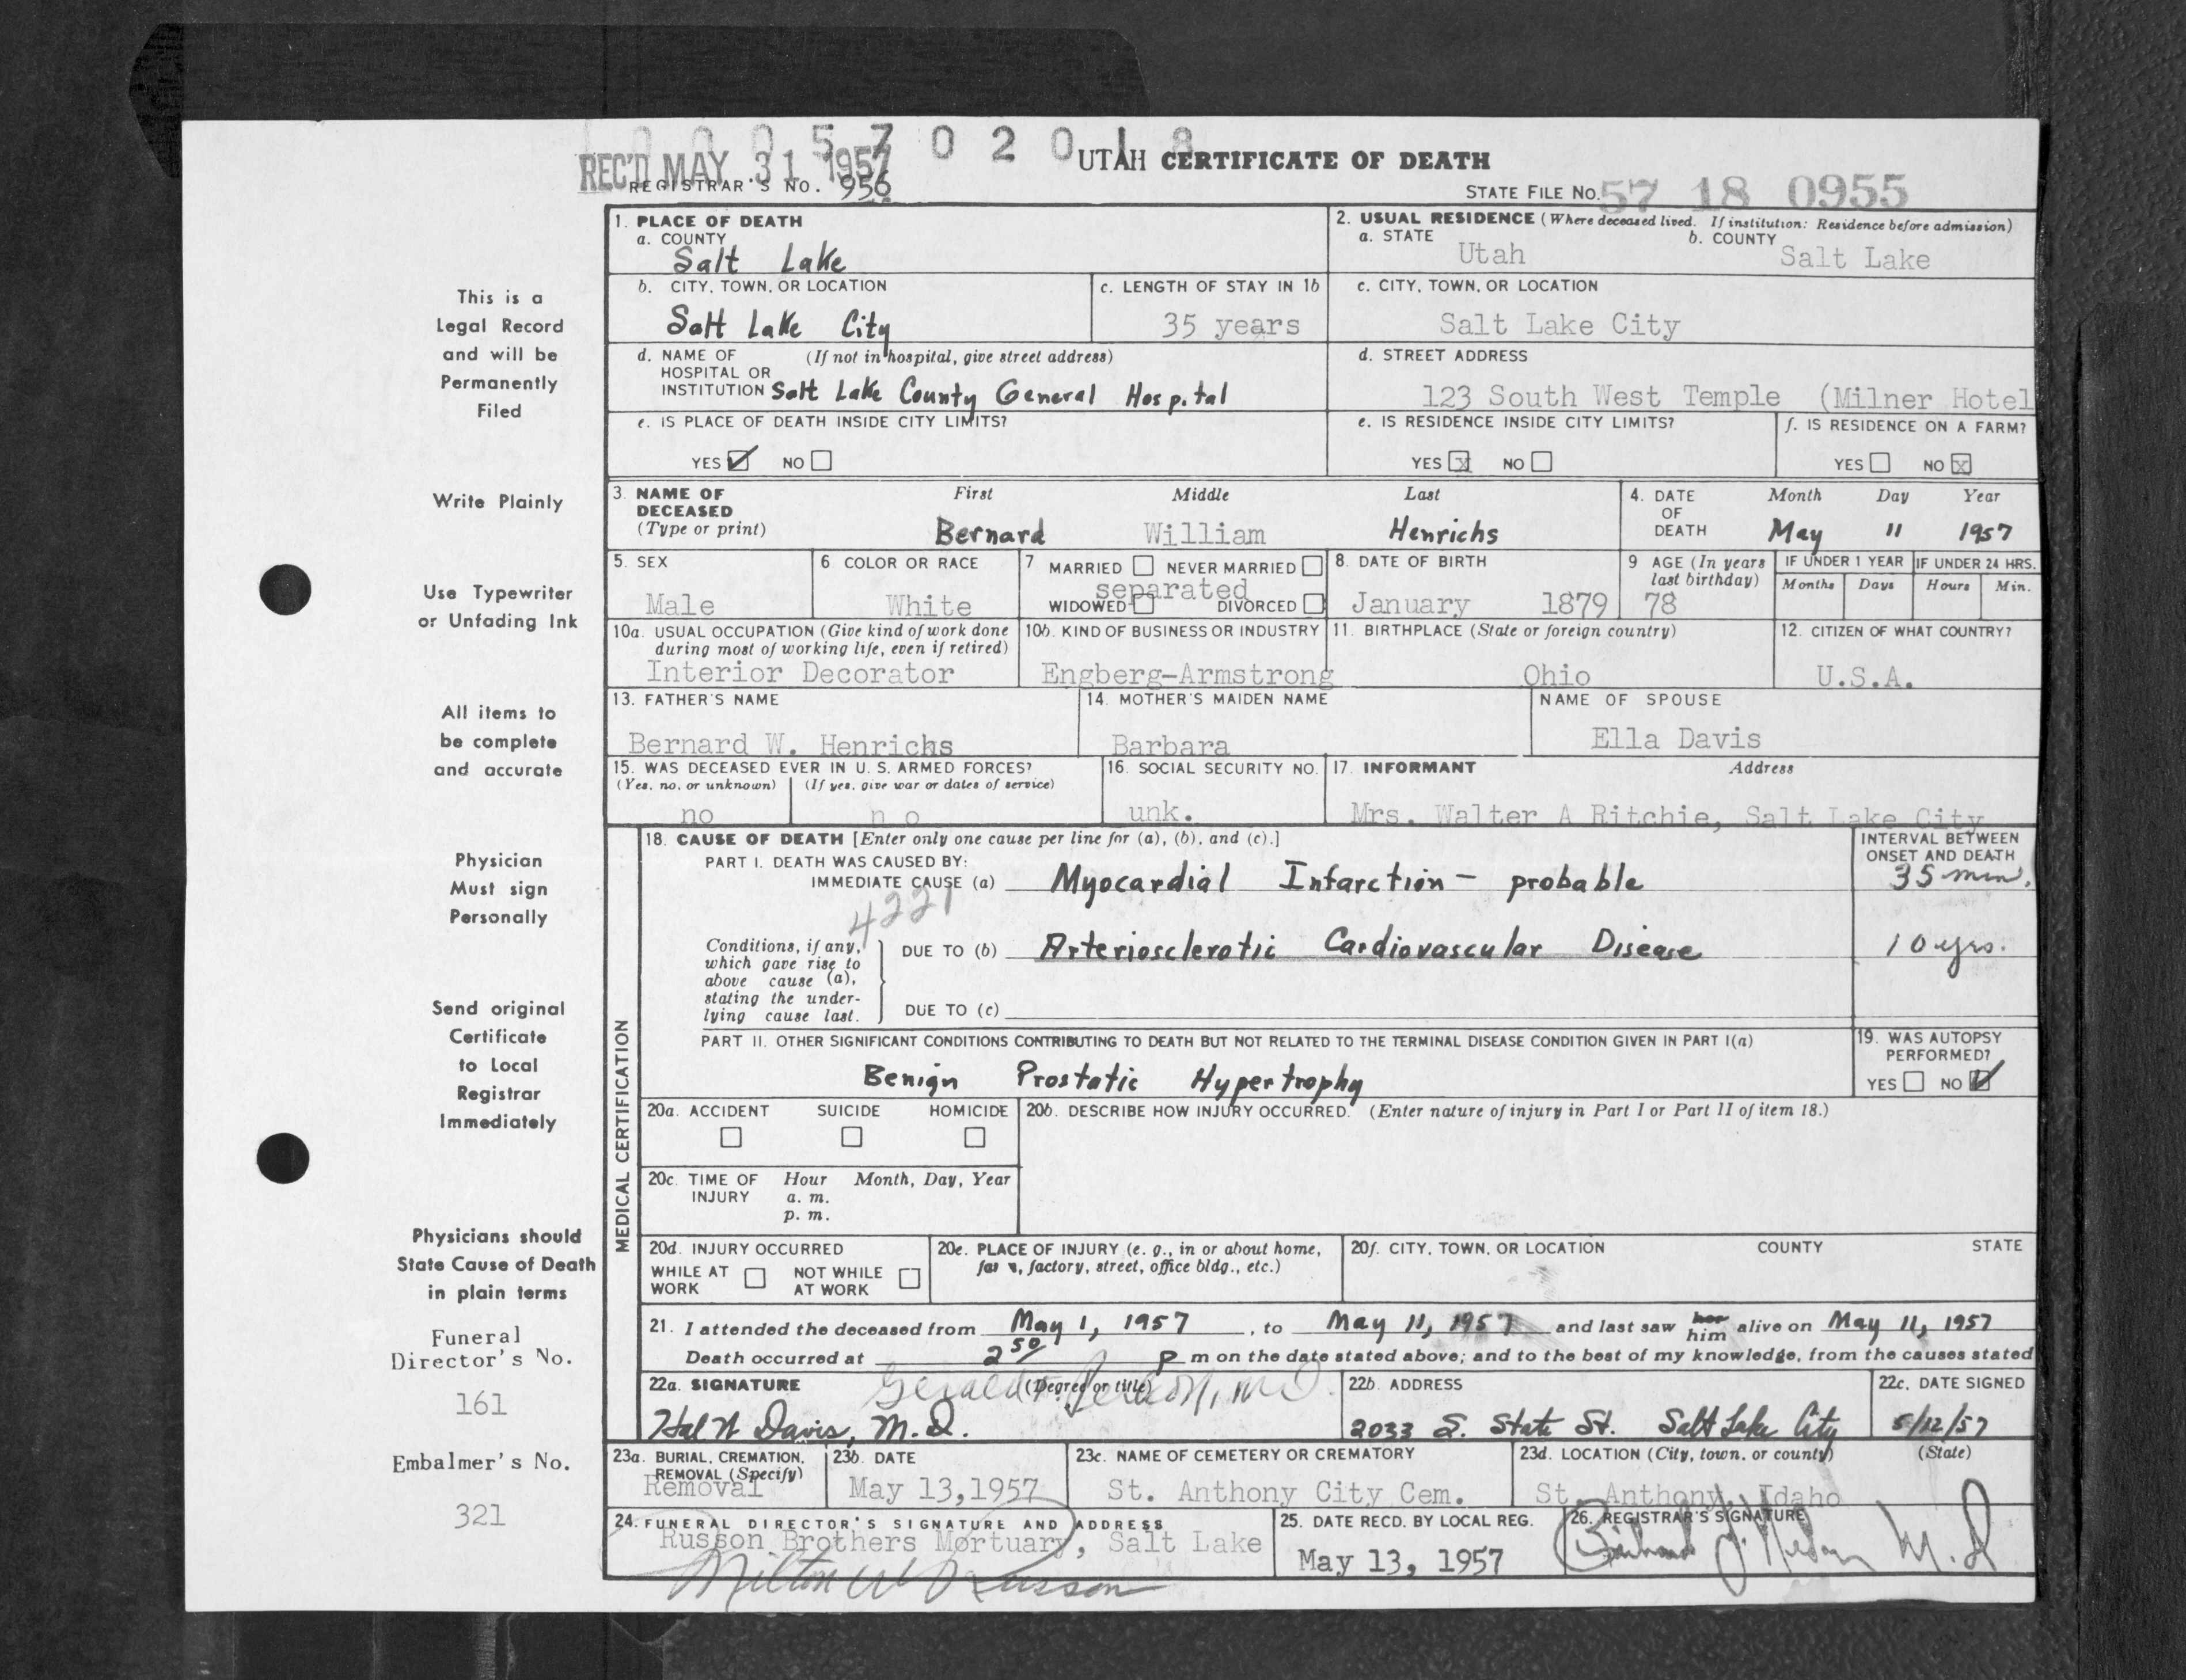 0 0 0 5 7 0 2 0 1 8
REC'D MAY 31 1957
UTAH CERTIFICATE OF DEATH
REGISTRAR'S NO. 956
STATE FILE NO. 57 18 0955
This is a
Legal Record
and will be
Permanently
Filed
Write Plainly
Use Typewriter
or Unfading Ink
All items to
be complete
and accurate
Physician
Must sign
Personally
Send original
Certificate
to Local
Registrar
Immediately
Physicians should
State Cause of Death
in plain terms
Funeral
Director's No.
161
Embalmer's No.
321
1. PLACE OF DEATH
a. COUNTY
Salt Lake
2. USUAL RESIDENCE (Where deceased lived. If institution: Residence before admission)
a. STATE b. COUNTY
Utah Salt Lake
b. CITY, TOWN, OR LOCATION
Salt Lake City
c. LENGTH OF STAY IN 1b
35 years
c. CITY, TOWN, OR LOCATION
Salt Lake City
d. NAME OF (If not in hospital, give street address)
HOSPITAL OR
INSTITUTION Salt Lake County General Hospital
d. STREET ADDRESS
123 South West Temple (Milner Hotel
e. IS PLACE OF DEATH INSIDE CITY LIMITS?
YES NO
e. IS RESIDENCE INSIDE CITY LIMITS?
YES X NO
f. IS RESIDENCE ON A FARM?
YES NO X
3. NAME OF First Middle Last
DECEASED
(Type or print) Bernard William Henrichs
4. DATE Month Day Year
OF
DEATH May 11 1957
5. SEX
Male
6 COLOR OR RACE
White
7 MARRIED NEVER MARRIED
separated
WIDOWED DIVORCED
8. DATE OF BIRTH
January 1879
9 AGE (In years
last birthday)
78
IF UNDER 1 YEAR
Months Days
IF UNDER 24 HRS.
Hours Min.
10a. USUAL OCCUPATION (Give kind of work done
during most of working life, even if retired)
Interior Decorator
10b. KIND OF BUSINESS OR INDUSTRY
Engberg-Armstrong
11. BIRTHPLACE (State or foreign country)
Ohio
12. CITIZEN OF WHAT COUNTRY?
U.S.A.
13. FATHER'S NAME
Bernard W. Henrichs
14. MOTHER'S MAIDEN NAME
Barbara
NAME OF SPOUSE
Ella Davis
15. WAS DECEASED EVER IN U. S. ARMED FORCES?
(Yes, no, or unknown) (If yes, give war or dates of service)
no n o
16. SOCIAL SECURITY NO.
unk.
17. INFORMANT Address
Mrs. Walter A Ritchie, Salt Lake City
MEDICAL CERTIFICATION
18. CAUSE OF DEATH [Enter only one cause per line for (a), (b), and (c).]
PART I. DEATH WAS CAUSED BY:
IMMEDIATE CAUSE (a) Myocardial Infarction - probable
INTERVAL BETWEEN
ONSET AND DEATH
35 min.
4221
Conditions, if any,
which gave rise to
above cause (a),
stating the under-
lying cause last.
DUE TO (b) Arteriosclerotic Cardiovascular Disease
10 yrs.
DUE TO (c)
PART II. OTHER SIGNIFICANT CONDITIONS CONTRIBUTING TO DEATH BUT NOT RELATED TO THE TERMINAL DISEASE CONDITION GIVEN IN PART I(a)
Benign Prostatic Hypertrophy
19. WAS AUTOPSY
PERFORMED?
YES NO
20a. ACCIDENT SUICIDE HOMICIDE
20b. DESCRIBE HOW INJURY OCCURRED. (Enter nature of injury in Part I or Part II of item 18.)
20c. TIME OF Hour Month, Day, Year
INJURY a. m.
p. m.
20d. INJURY OCCURRED
WHILE AT NOT WHILE
WORK AT WORK
20e. PLACE OF INJURY (e. g., in or about home,
farm, factory, street, office bldg., etc.)
20f. CITY, TOWN, OR LOCATION COUNTY STATE
21. I attended the deceased from May 1, 1957, to May 11, 1957 and last saw her him alive on May 11, 1957
Death occurred at 2 50 P m on the date stated above; and to the best of my knowledge, from the causes stated
22a. SIGNATURE (Degree or title)
Gerald M.D.
Hal N Davis, M.D.
22b. ADDRESS
2033 S. State St. Salt Lake City
22c. DATE SIGNED
5/12/57
23a. BURIAL, CREMATION,
REMOVAL (Specify)
Removal
23b. DATE
May 13, 1957
23c. NAME OF CEMETERY OR CREMATORY
St. Anthony City Cem.
23d. LOCATION (City, town, or county) (State)
St. Anthony, Idaho
24. FUNERAL DIRECTOR'S SIGNATURE AND ADDRESS
Russon Brothers Mortuary, Salt Lake
Milton W Russon
25. DATE RECD. BY LOCAL REG.
May 13, 1957
26. REGISTRAR'S SIGNATURE
M.D